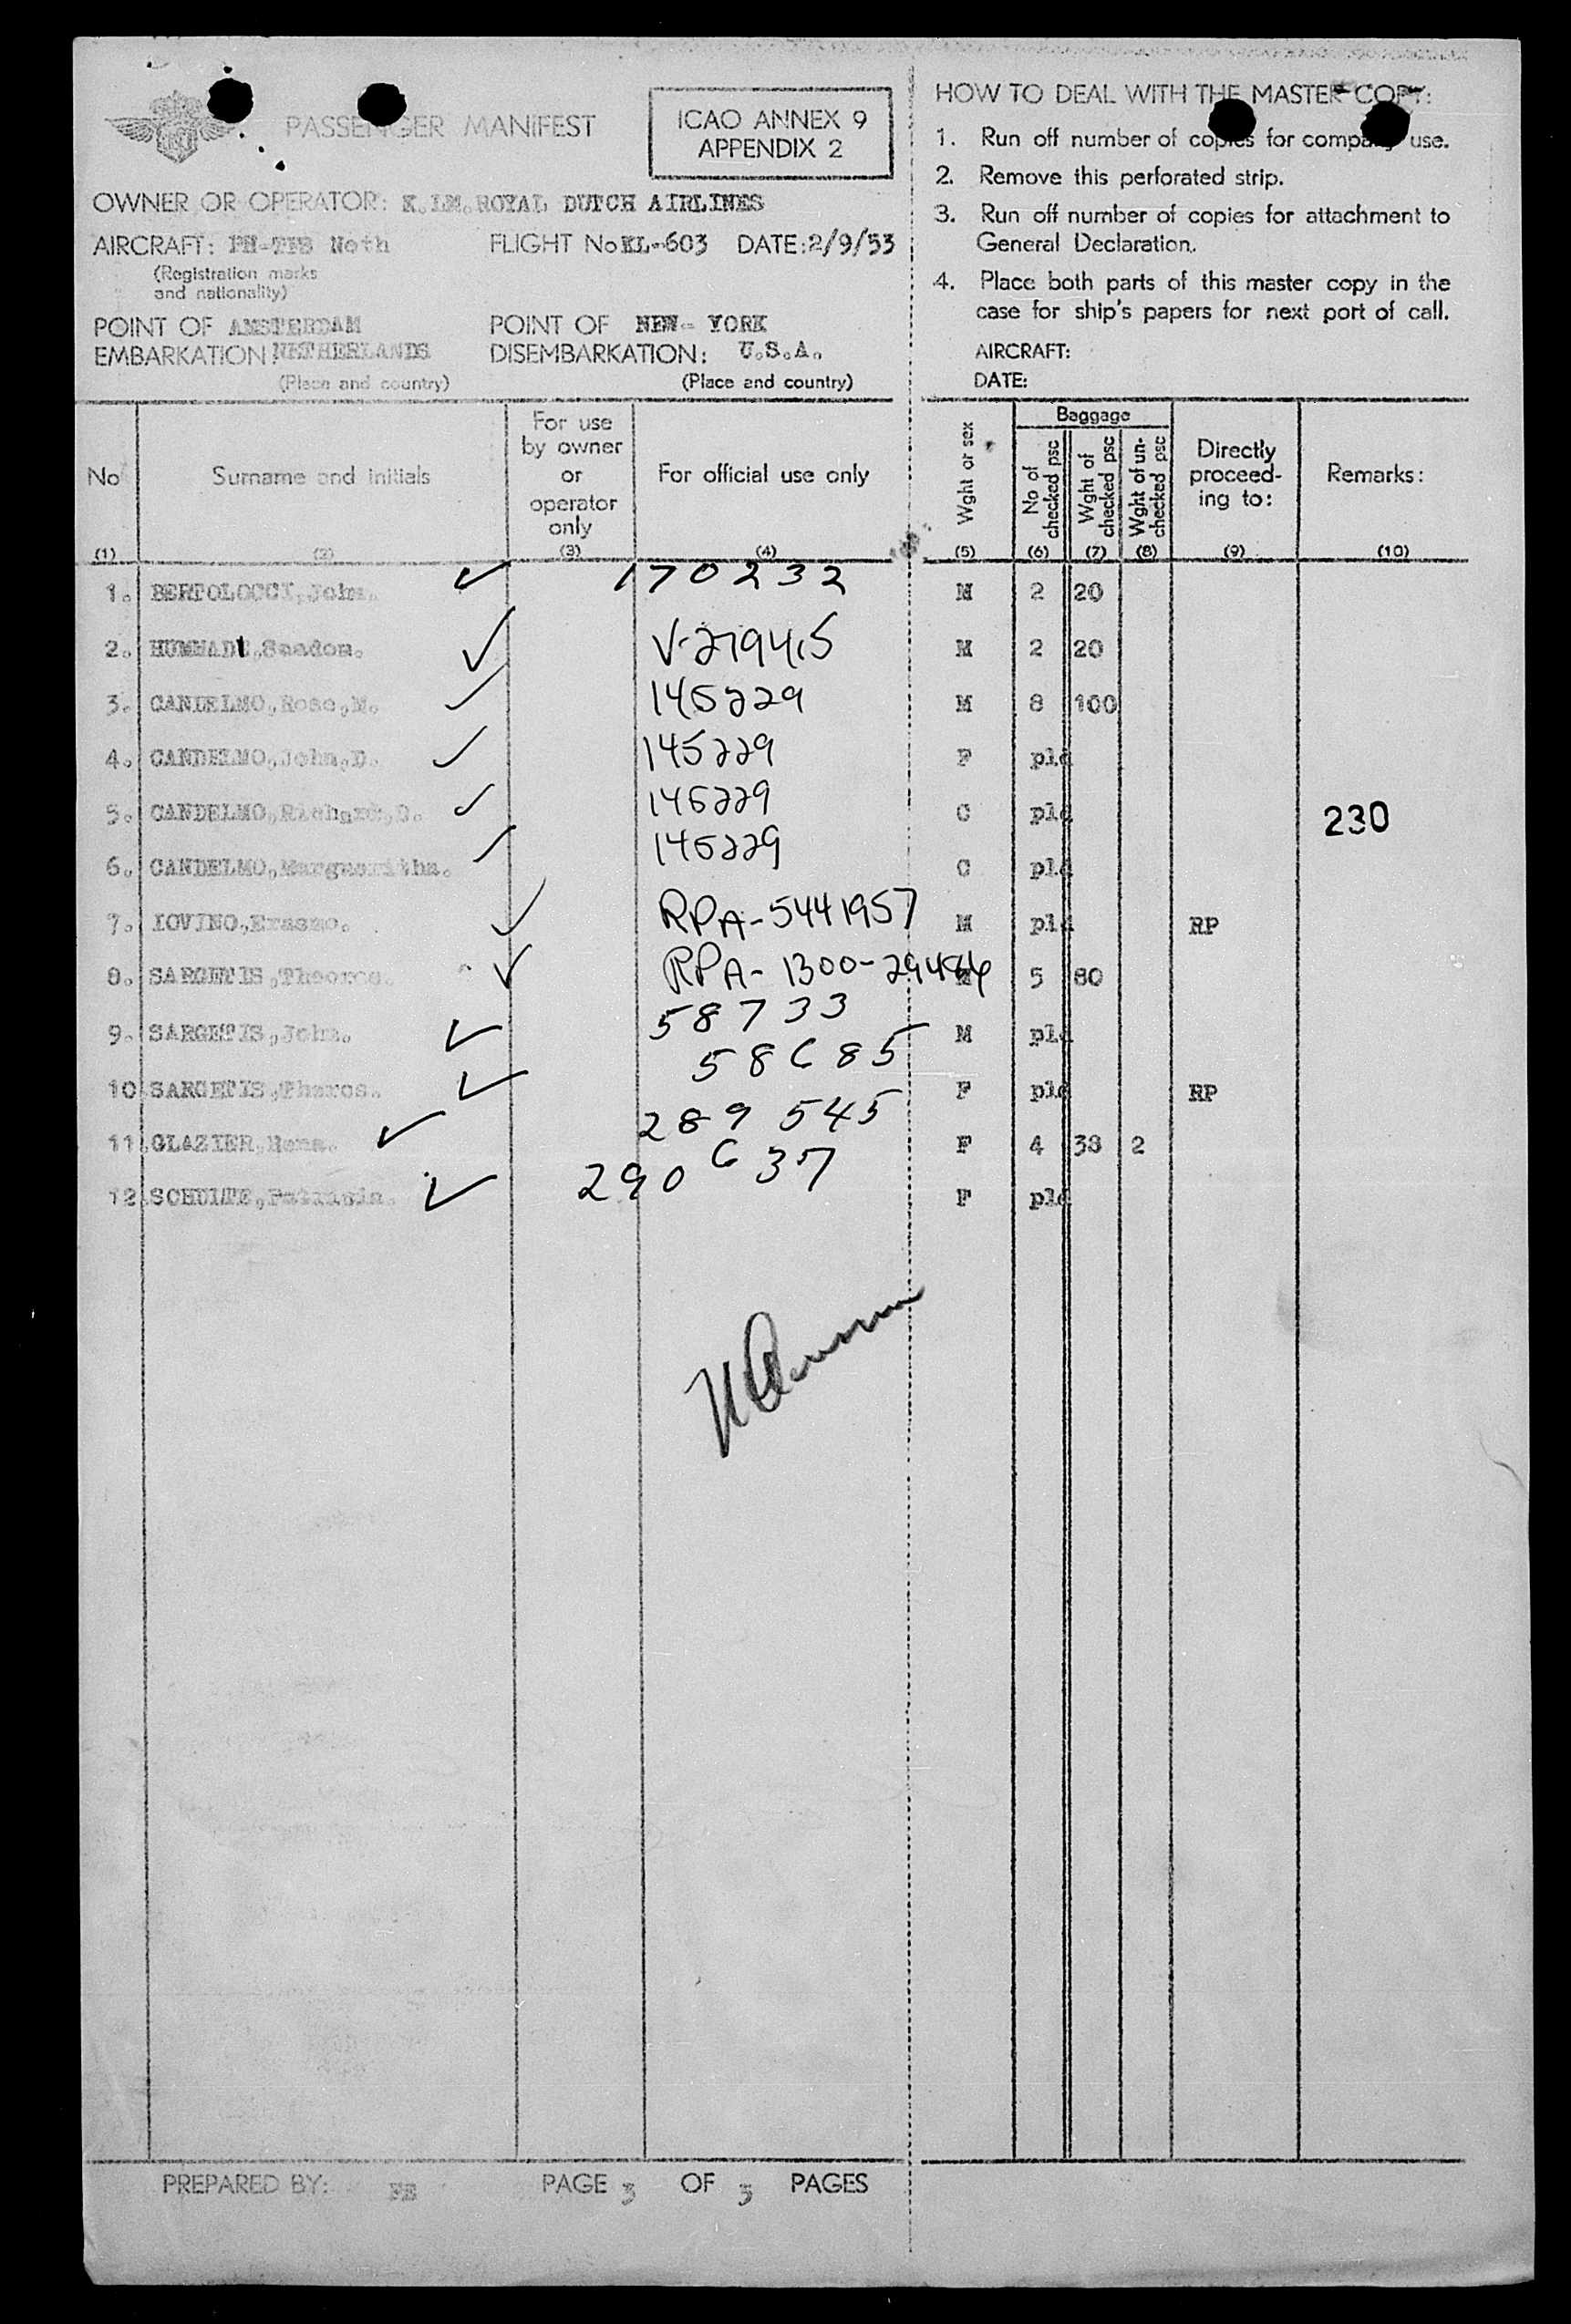 PASSENGER MANIFEST
ICAO ANNEX 9
APPENDIX 2
OWNER OR OPERATOR: K.LM.ROYAL DUTCH AIRLINES
AIRCRAFT: Neth FLIGHT No KL-603 DATE: 2/9/53
(Registration marks
and nationality)
POINT OF AMSTERDAM POINT OF NEW-YORK
EMBARKATION: NETHERLANDS DISEMBARKATION: U.S.A.
(Place and country) (Place and country)
HOW TO DEAL WITH THE MASTER COPY:
1. Run off number of copies for company use.
2. Remove this perforated strip.
3. Run off number of copies for attachment to
General Declaration.
4. Place both parts of this master copy in the
case for ship's papers for next port of call.
AIRCRAFT:
DATE:
No Surname and initials For use by owner or operator only For official use only Wght or sex Baggage No of checked psc Wght of checked psc Wght of un-checked psc Directly proceed-ing to: Remarks:
(1) (2) (3) (4) (5) (6) (7) (8) (9) (10)
1. BERTOLOCCI, John. ✓ 170232 M 2 20
2. ✓ V-279415 M 2 20
3. CANDELMO, Rose, M. ✓ 145229 M 8 100
4. CANDELMO, John, D. ✓ 145229 F pld
5. CANDELMO, Richard, D. ✓ 145229 C pld 230
6. CANDELMO, ✓ 145229 C pld
7. IOVINO, Erasmo. ✓ RPA-5441957 M pld RP
8. SARGETIS, ✓ RPA-1300- 5 80
9. SARGETIS, John. ✓ 58733 M pld
10 SARGETIS, Pharos. ✓ 58685 F pld RP
11. GLAZIER, ✓ 289545 F 4 38 2
12. SCHULTE, Patrasia. ✓ 290637 F pld
PREPARED BY: PAGE 3 OF 3 PAGES